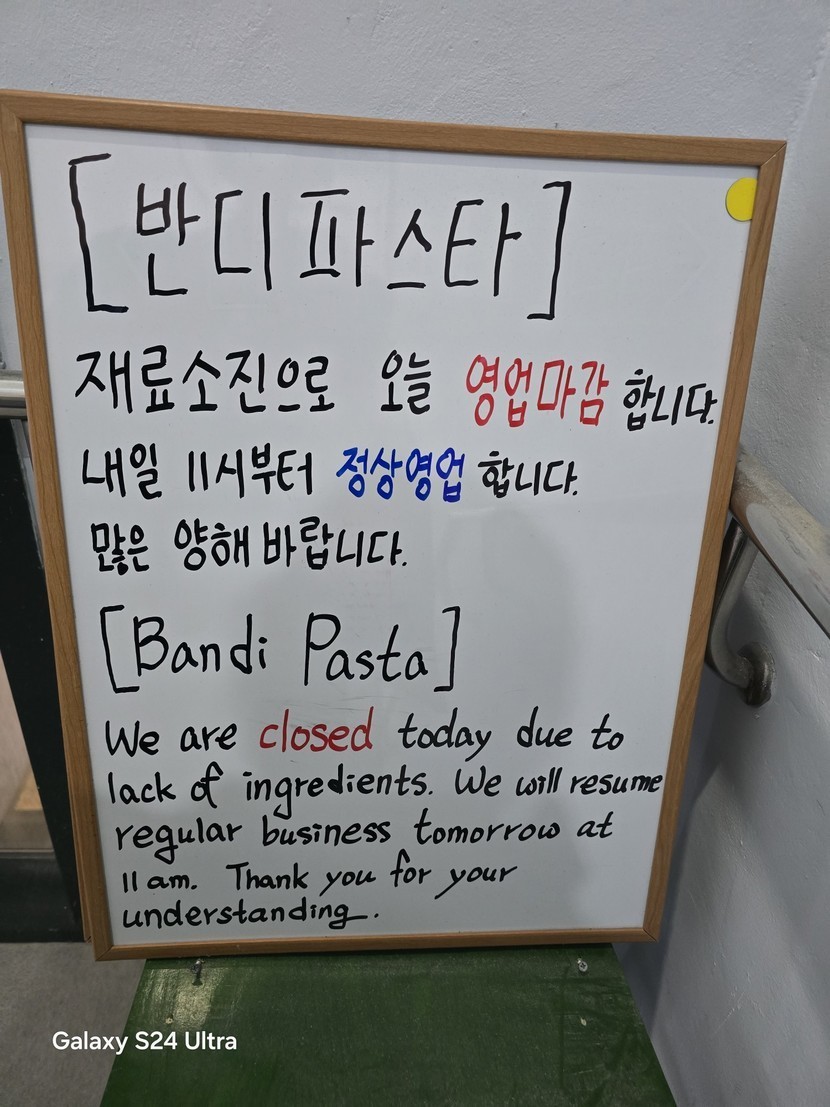 [반디파스타]
재료소진으로 오늘 영업마감 합니다.
내일 11시부터 정상영업 합니다.
많은 양해 바랍니다.
[Bandi Pasta]
We are closed today due to
lack of ingredients. We will resume
regular business tomorrow at
11 am. Thank you for your
understanding.
Galaxy S24 Ultra